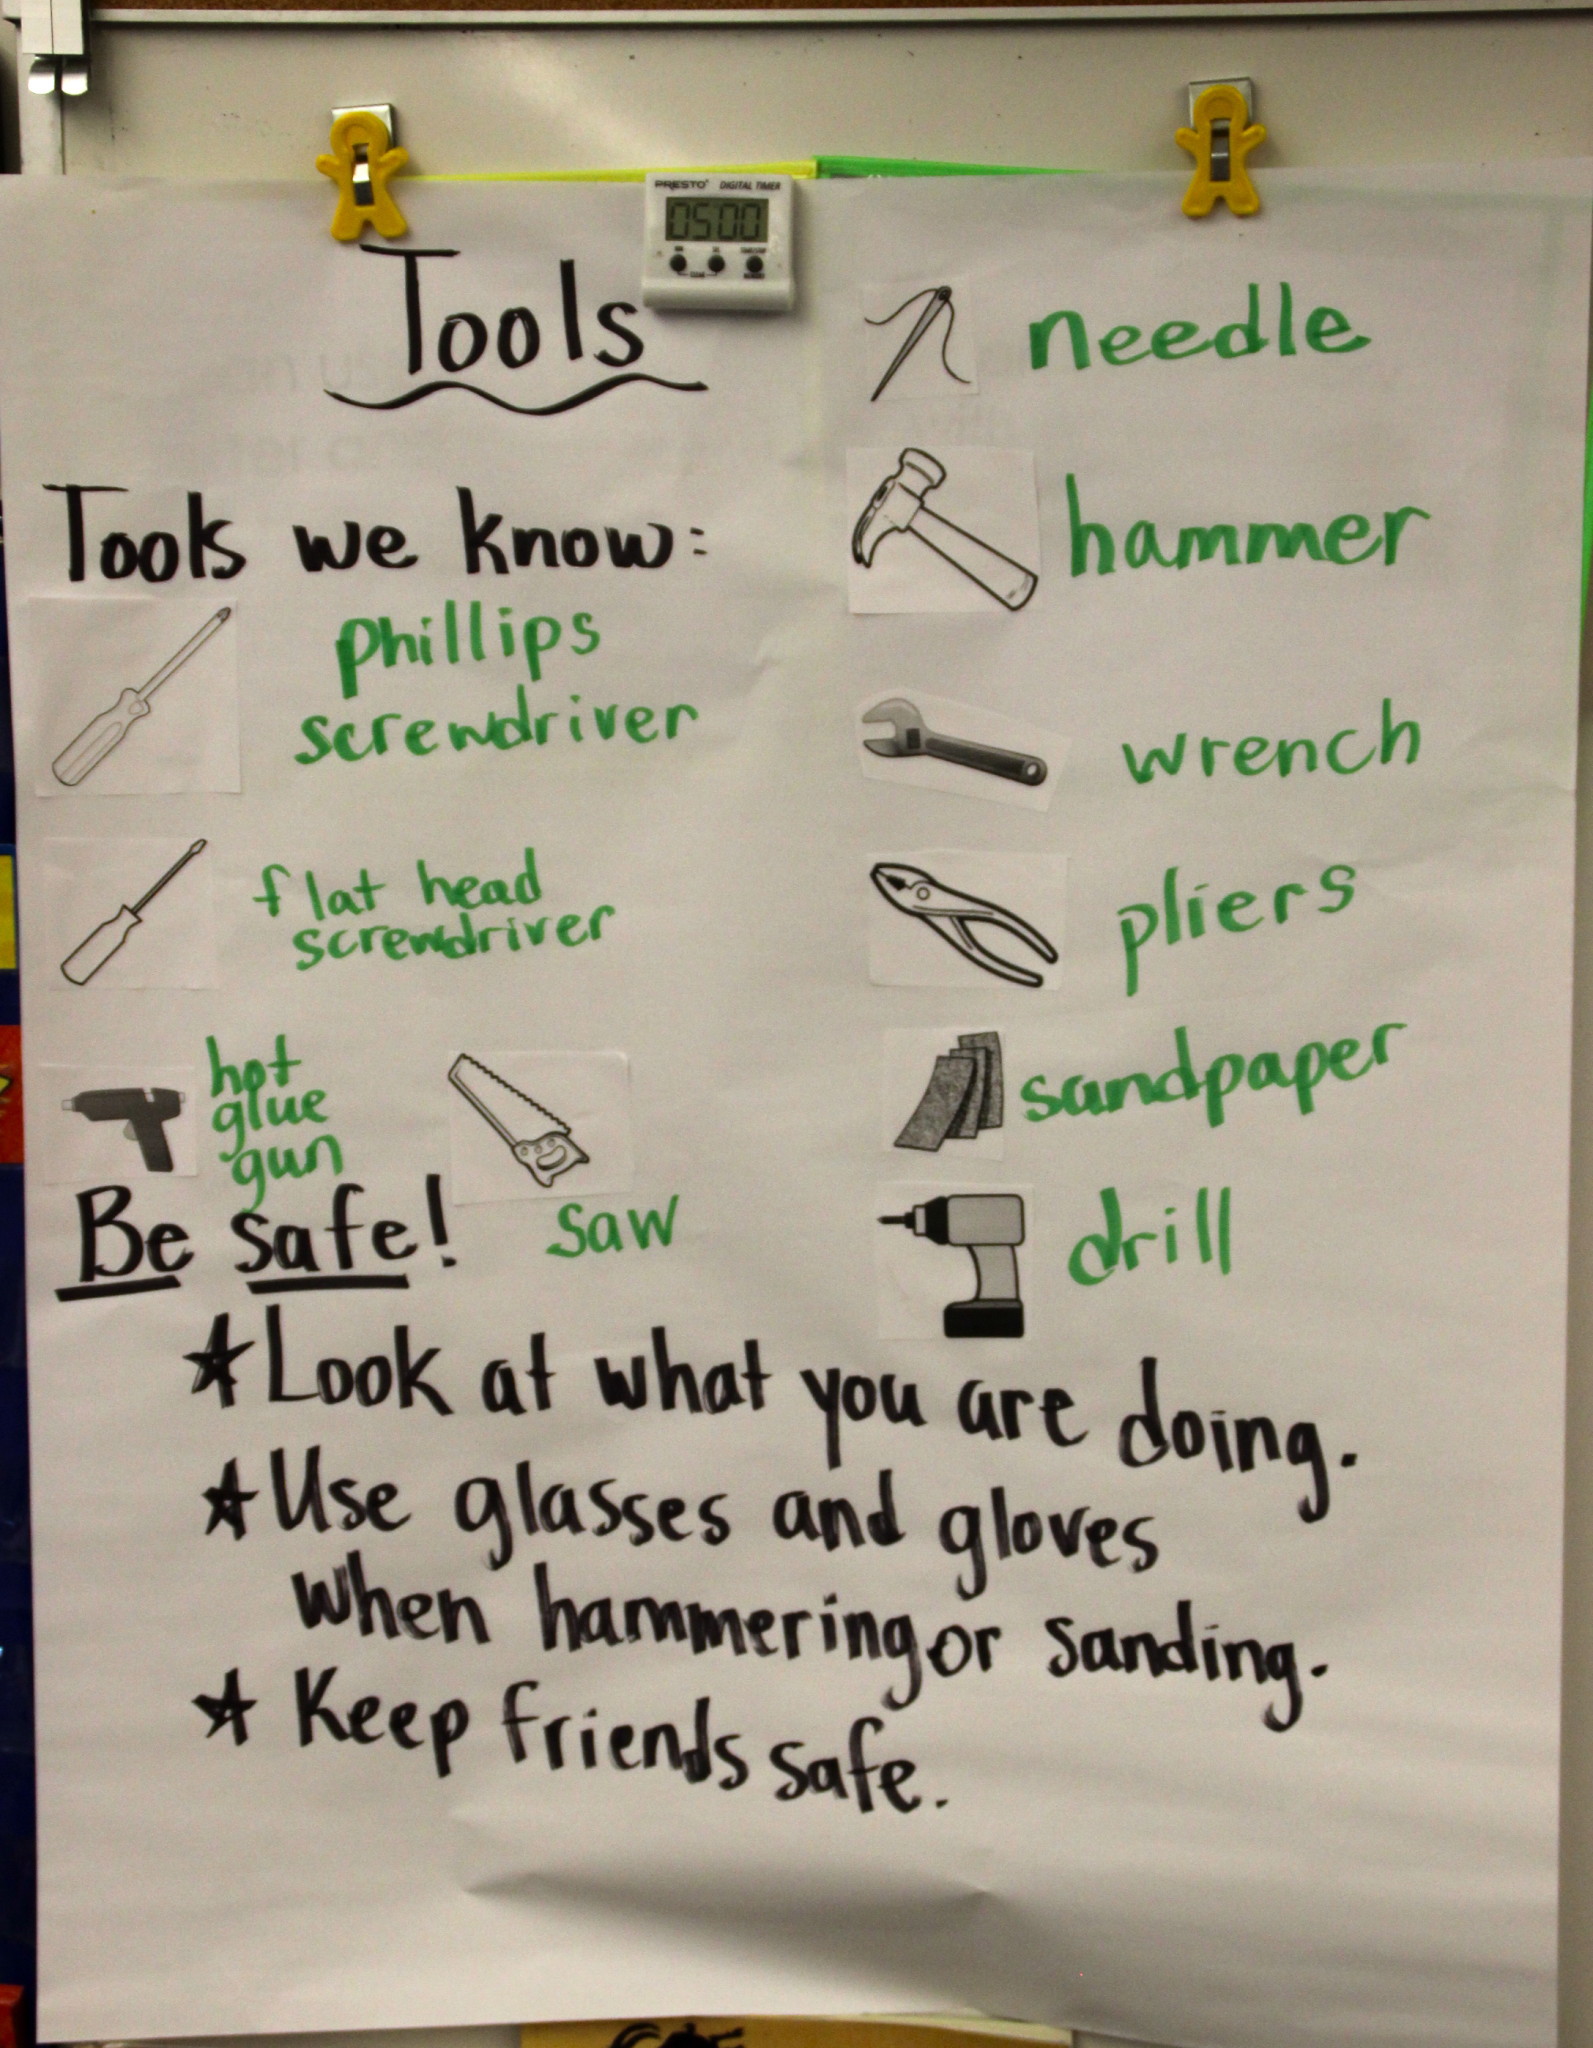 PRESTO DIGITAL TIMER
05 00
Tools
Tools we know:
phillips
screwdriver
flat head
screwdriver
hot
glue
gun
saw
needle
hammer
wrench
pliers
sandpaper
drill
Be safe!
Look at what you are doing.
Use glasses and gloves
when hammering or sanding.
Keep friends safe.